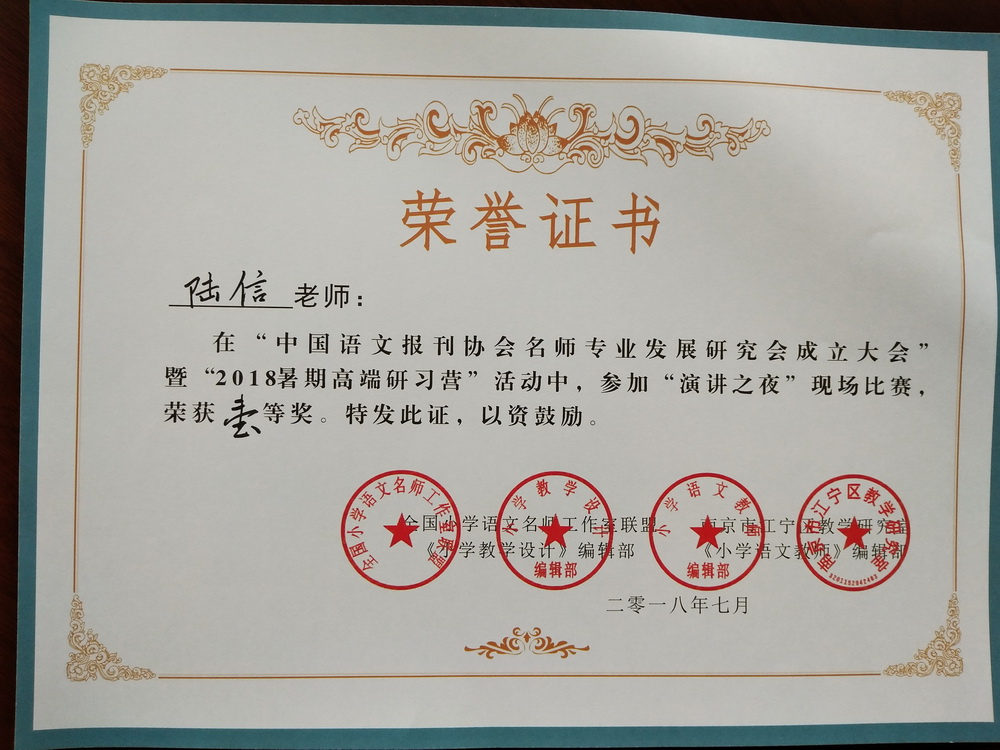 荣誉证书
陆信老师：
在“中国语文报刊协会名师专业发展研究会成立大会”
暨“2018暑期高端研习营”活动中，参加“演讲之夜”现场比赛，
荣获壹等奖。特发此证，以资鼓励。
全国小学语文名师工作室联盟 南京市江宁区教学研究室
《小学教学设计》编辑部 《小学语文教师》编辑部
二零一八年七月
全国小学语文名师工作室联盟
小学教学设计
编辑部
小学语文教师
编辑部
南京市江宁区教学研究室